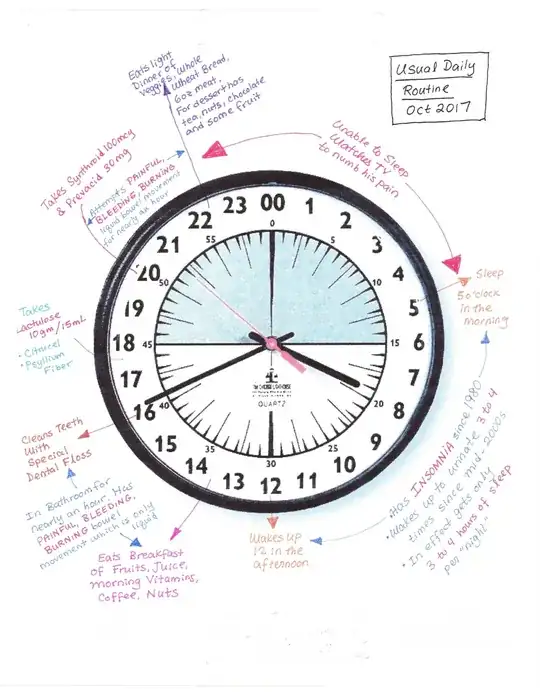 Usual Daily
Routine
Oct 2017
Eats light
Dinner of
veggies, whole
Wheat Bread,
6oz meat.
For dessert has
tea, nuts, chocolate
and some fruit
Unable to Sleep
Watches TV
to numb his pain
Takes Synthroid 100mcg
& Prevacid 30mg
Attempts PAINFUL,
BLEEDING, BURNING
liquid bowel movement
for nearly an hour
00
1
2
3
4
5
6
7
8
9
10
11
12
13
14
15
16
17
18
19
20
21
22
23
0
5
10
15
20
25
30
35
40
45
50
55
QUARTZ
Sleep
5 o'clock
in the
morning
Takes
Lactulose
10gm/15mL
• Citrucel
• Psyllium
Fiber
Cleans Teeth
With
Special
Dental Floss
In Bathroom for
nearly an hour. Has
PAINFUL, BLEEDING,
BURNING bowel
movement which is only
liquid
Eats Breakfast
of Fruits, Juice,
Morning Vitamins,
Coffee, Nuts
Wakes up
12 in the
afternoon
Has INSOMNIA since 1980
• Wakes up to urinate 3 to 4
times since mid-2000s
• In effect gets only
3 to 4 hours of sleep
per "night"